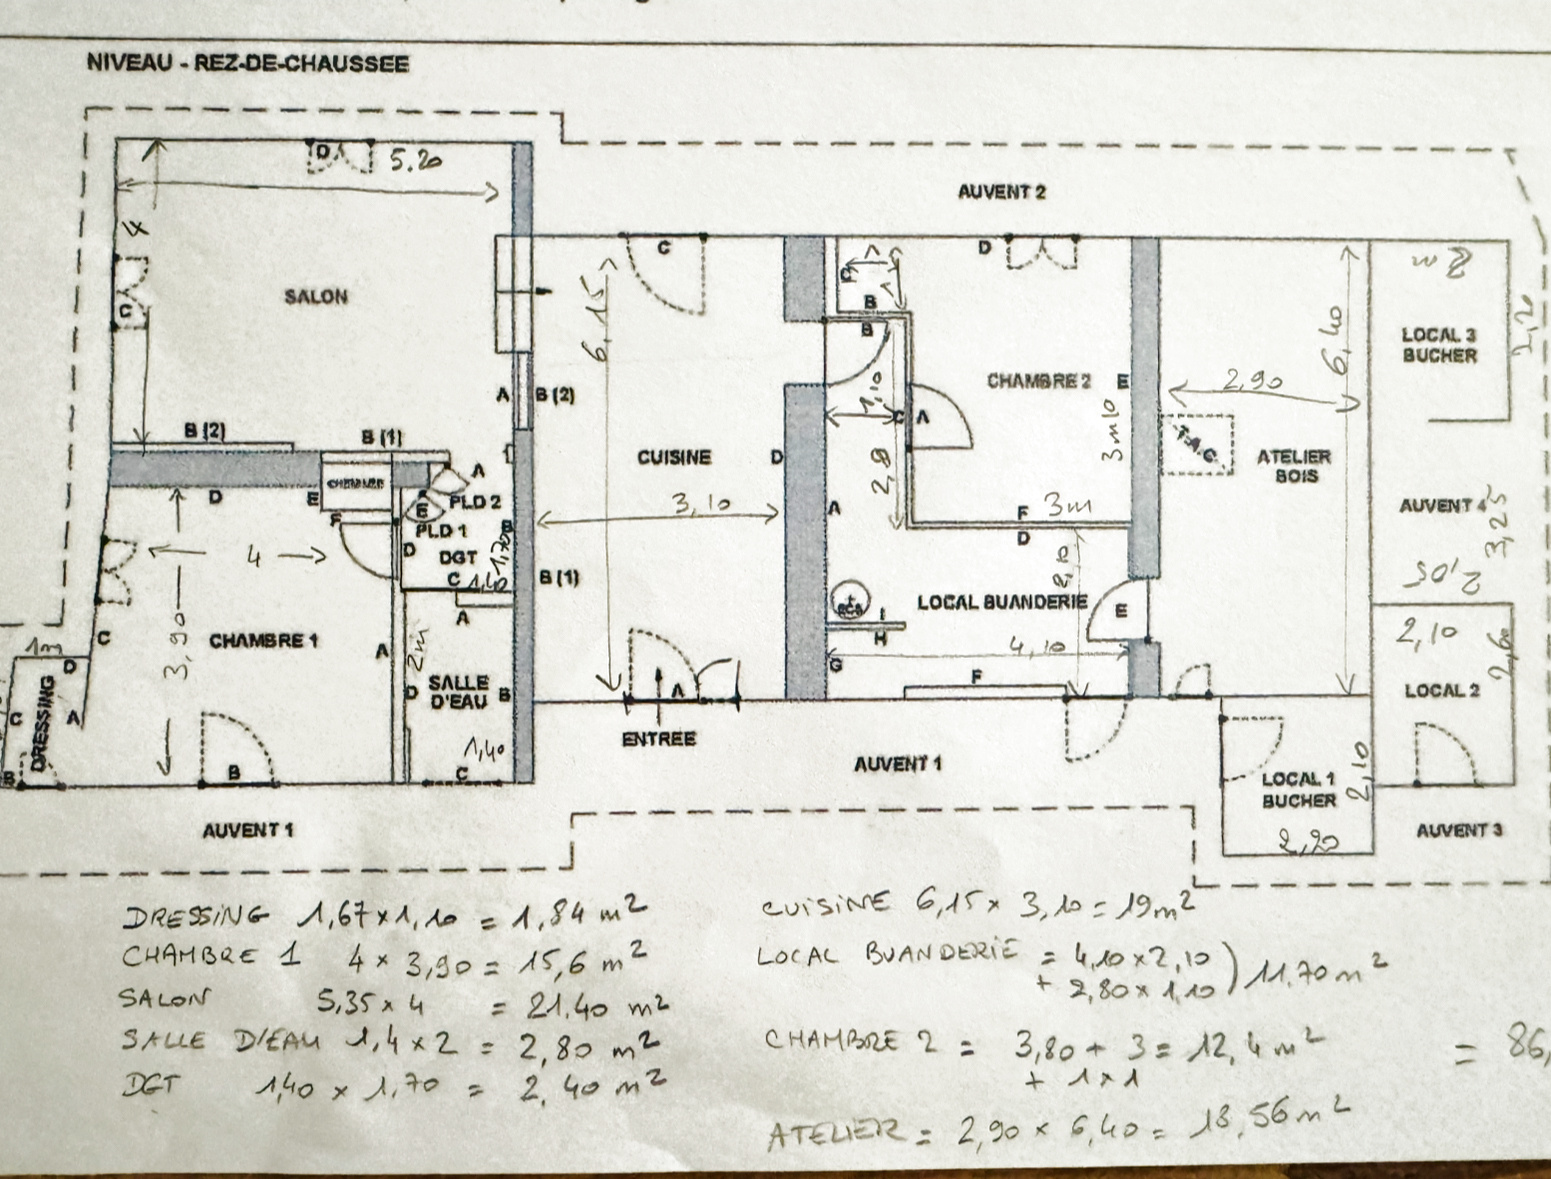 NIVEAU - REZ-DE-CHAUSSEE
D
5.20
AUVENT 2
4
C
D
C
C
B
1
2m
SALON
6,15
B
LOCAL 3
BUCHER
2,20
6,40
C
CHAMBRE 2
E
2,90
A
B (2)
1,10
C
A
3m10
B (2)
B (1)
A
CUISINE
D
T.A.C.
ATELIER
BOIS
D
E
CHEMINEE
PLD 2
E
2,80
A
3,10
F
3m
D
AUVENT 4
3,25
F
PLD 1
B
D
DGT
1,70
4
C
1,40
B (1)
2,10
2,05
ECS
LOCAL BUANDERIE
E
I
H
A
C
CHAMBRE 1
3,90
A
2m
G
4,10
2,10
2,60
1m
D
DRESSING
C
A
D
SALLE
D'EAU
B
F
LOCAL 2
A
ENTREE
1,40
B
B
C
AUVENT 1
LOCAL 1
BUCHER
2,10
2,20
AUVENT 1
AUVENT 3
DRESSING 1,67x1,10 = 1,84 m²
CHAMBRE 1 4 x 3,90 = 15,6 m²
SALON 5,35 x 4 = 21.40 m²
SALLE D'EAU 1,4 x 2 = 2,80 m²
DGT 1,40 x 1,70 = 2,40 m²
CUISINE 6,15 x 3,10 = 19 m²
LOCAL BUANDERIE = 4,10 x 2,10
+ 2,80 x 1,10 ) 11.70 m²
CHAMBRE 2 = 3,80 + 3 = 12,4 m²
+ 1 x 1
= 86,
ATELIER = 2,90 x 6,40 = 18,56 m²